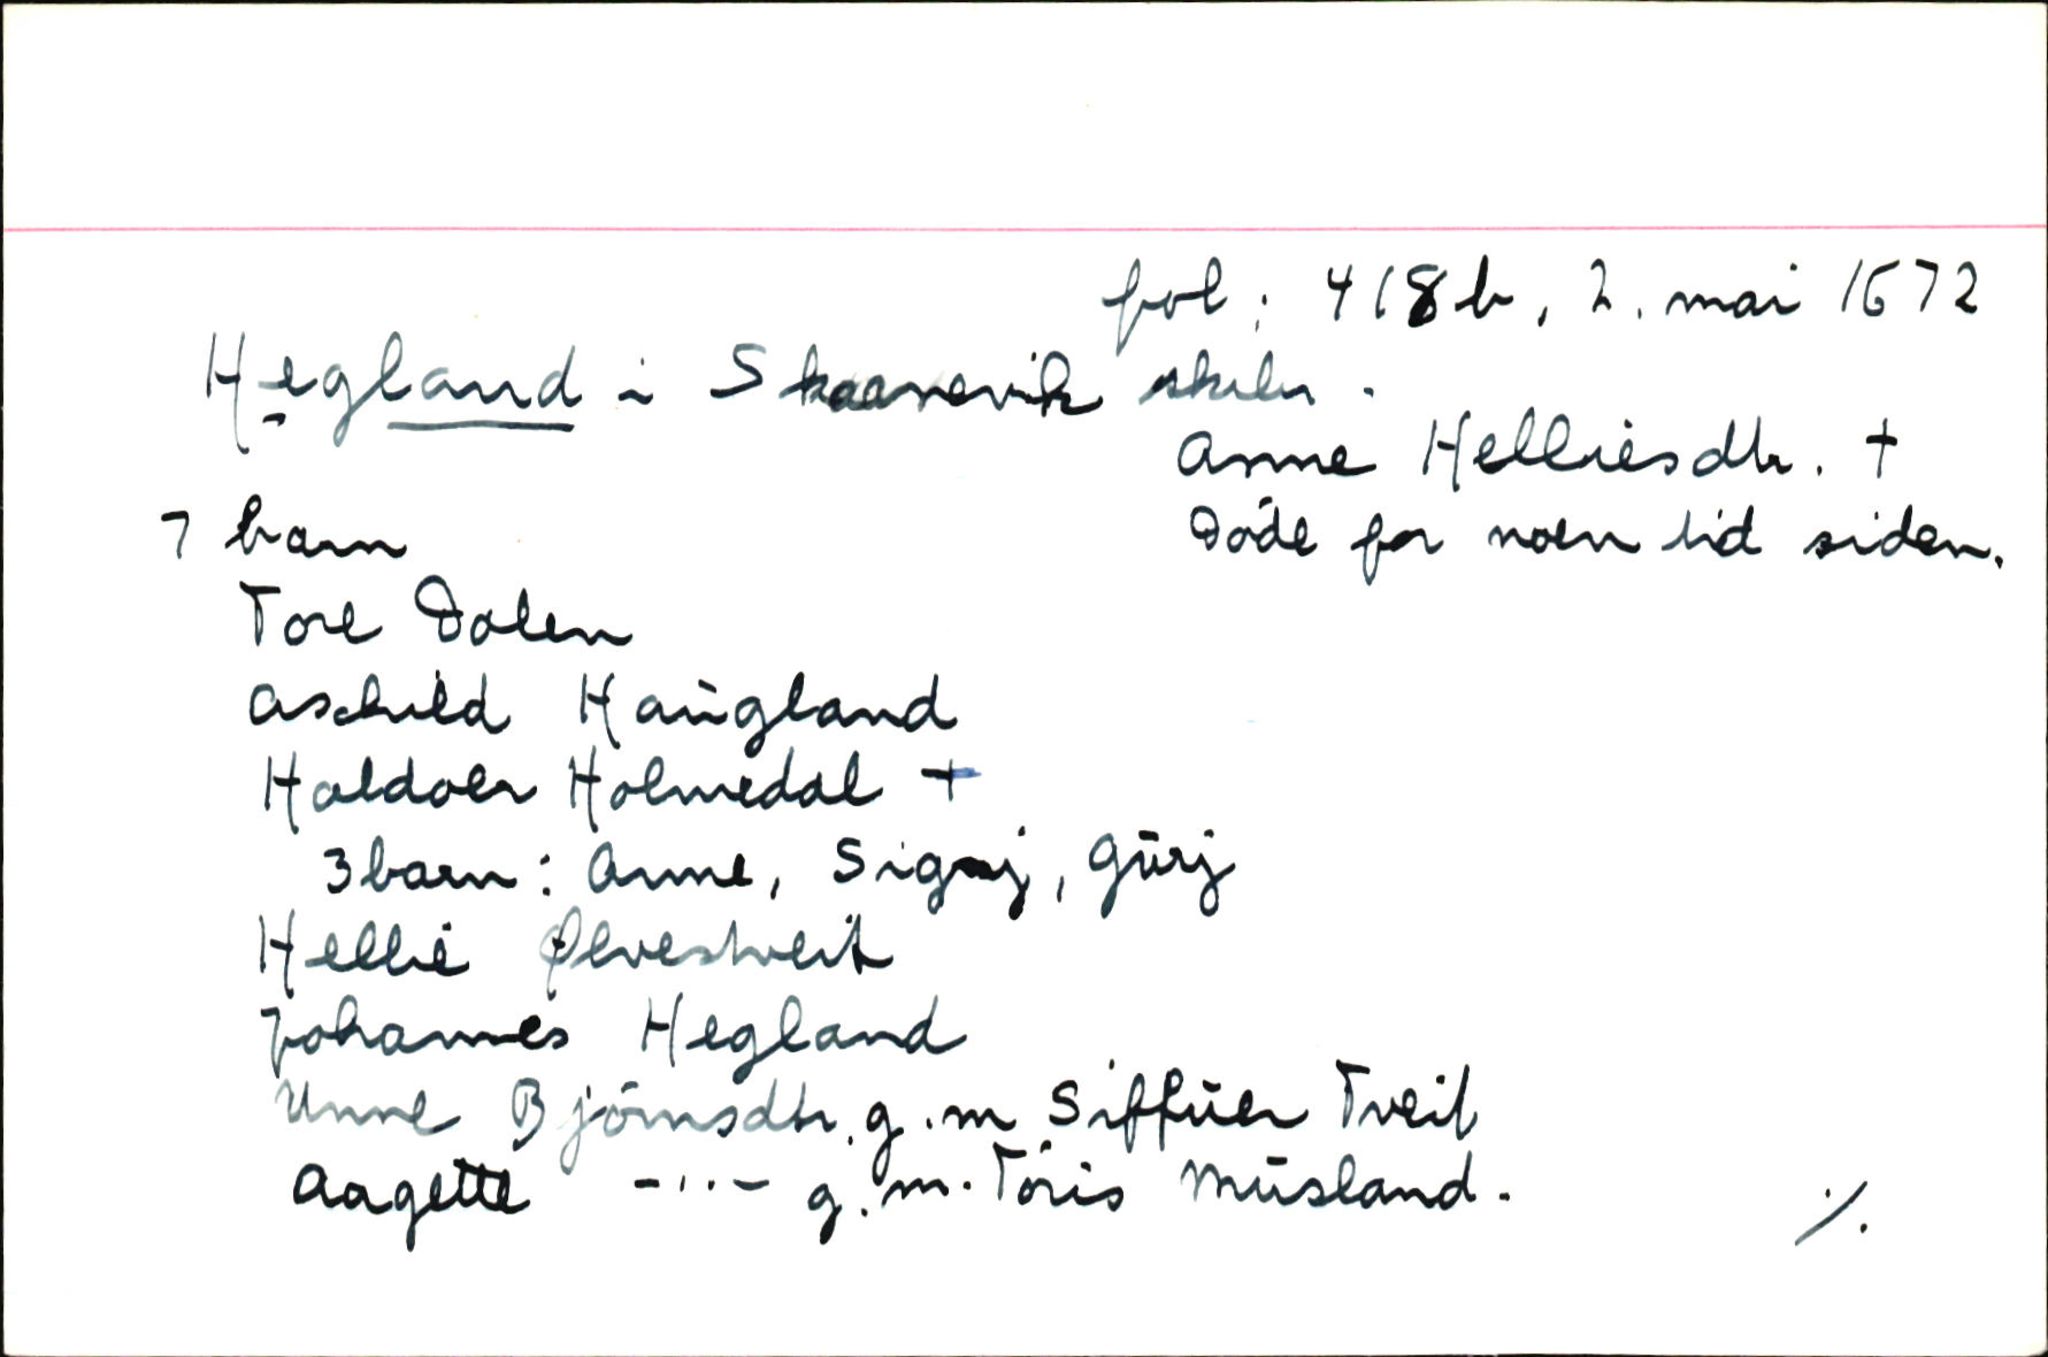 fol: 418b, 2. mai 1672
Hegland i Skaanevik skibr.
Anne Helliesdtr. †
Døde for noen tid siden.
7 barn
Tore Dalen
Aschild Haugland
Haldoer Holmedal †
3 barn: Anne, Signj, Gurj
Hellie Ølvestveit
Johannes Hegland
Unne Bjørnsdtr. g.m Siffuer Tveit
Aagette -"- g.m. Tøris Musland.
./.